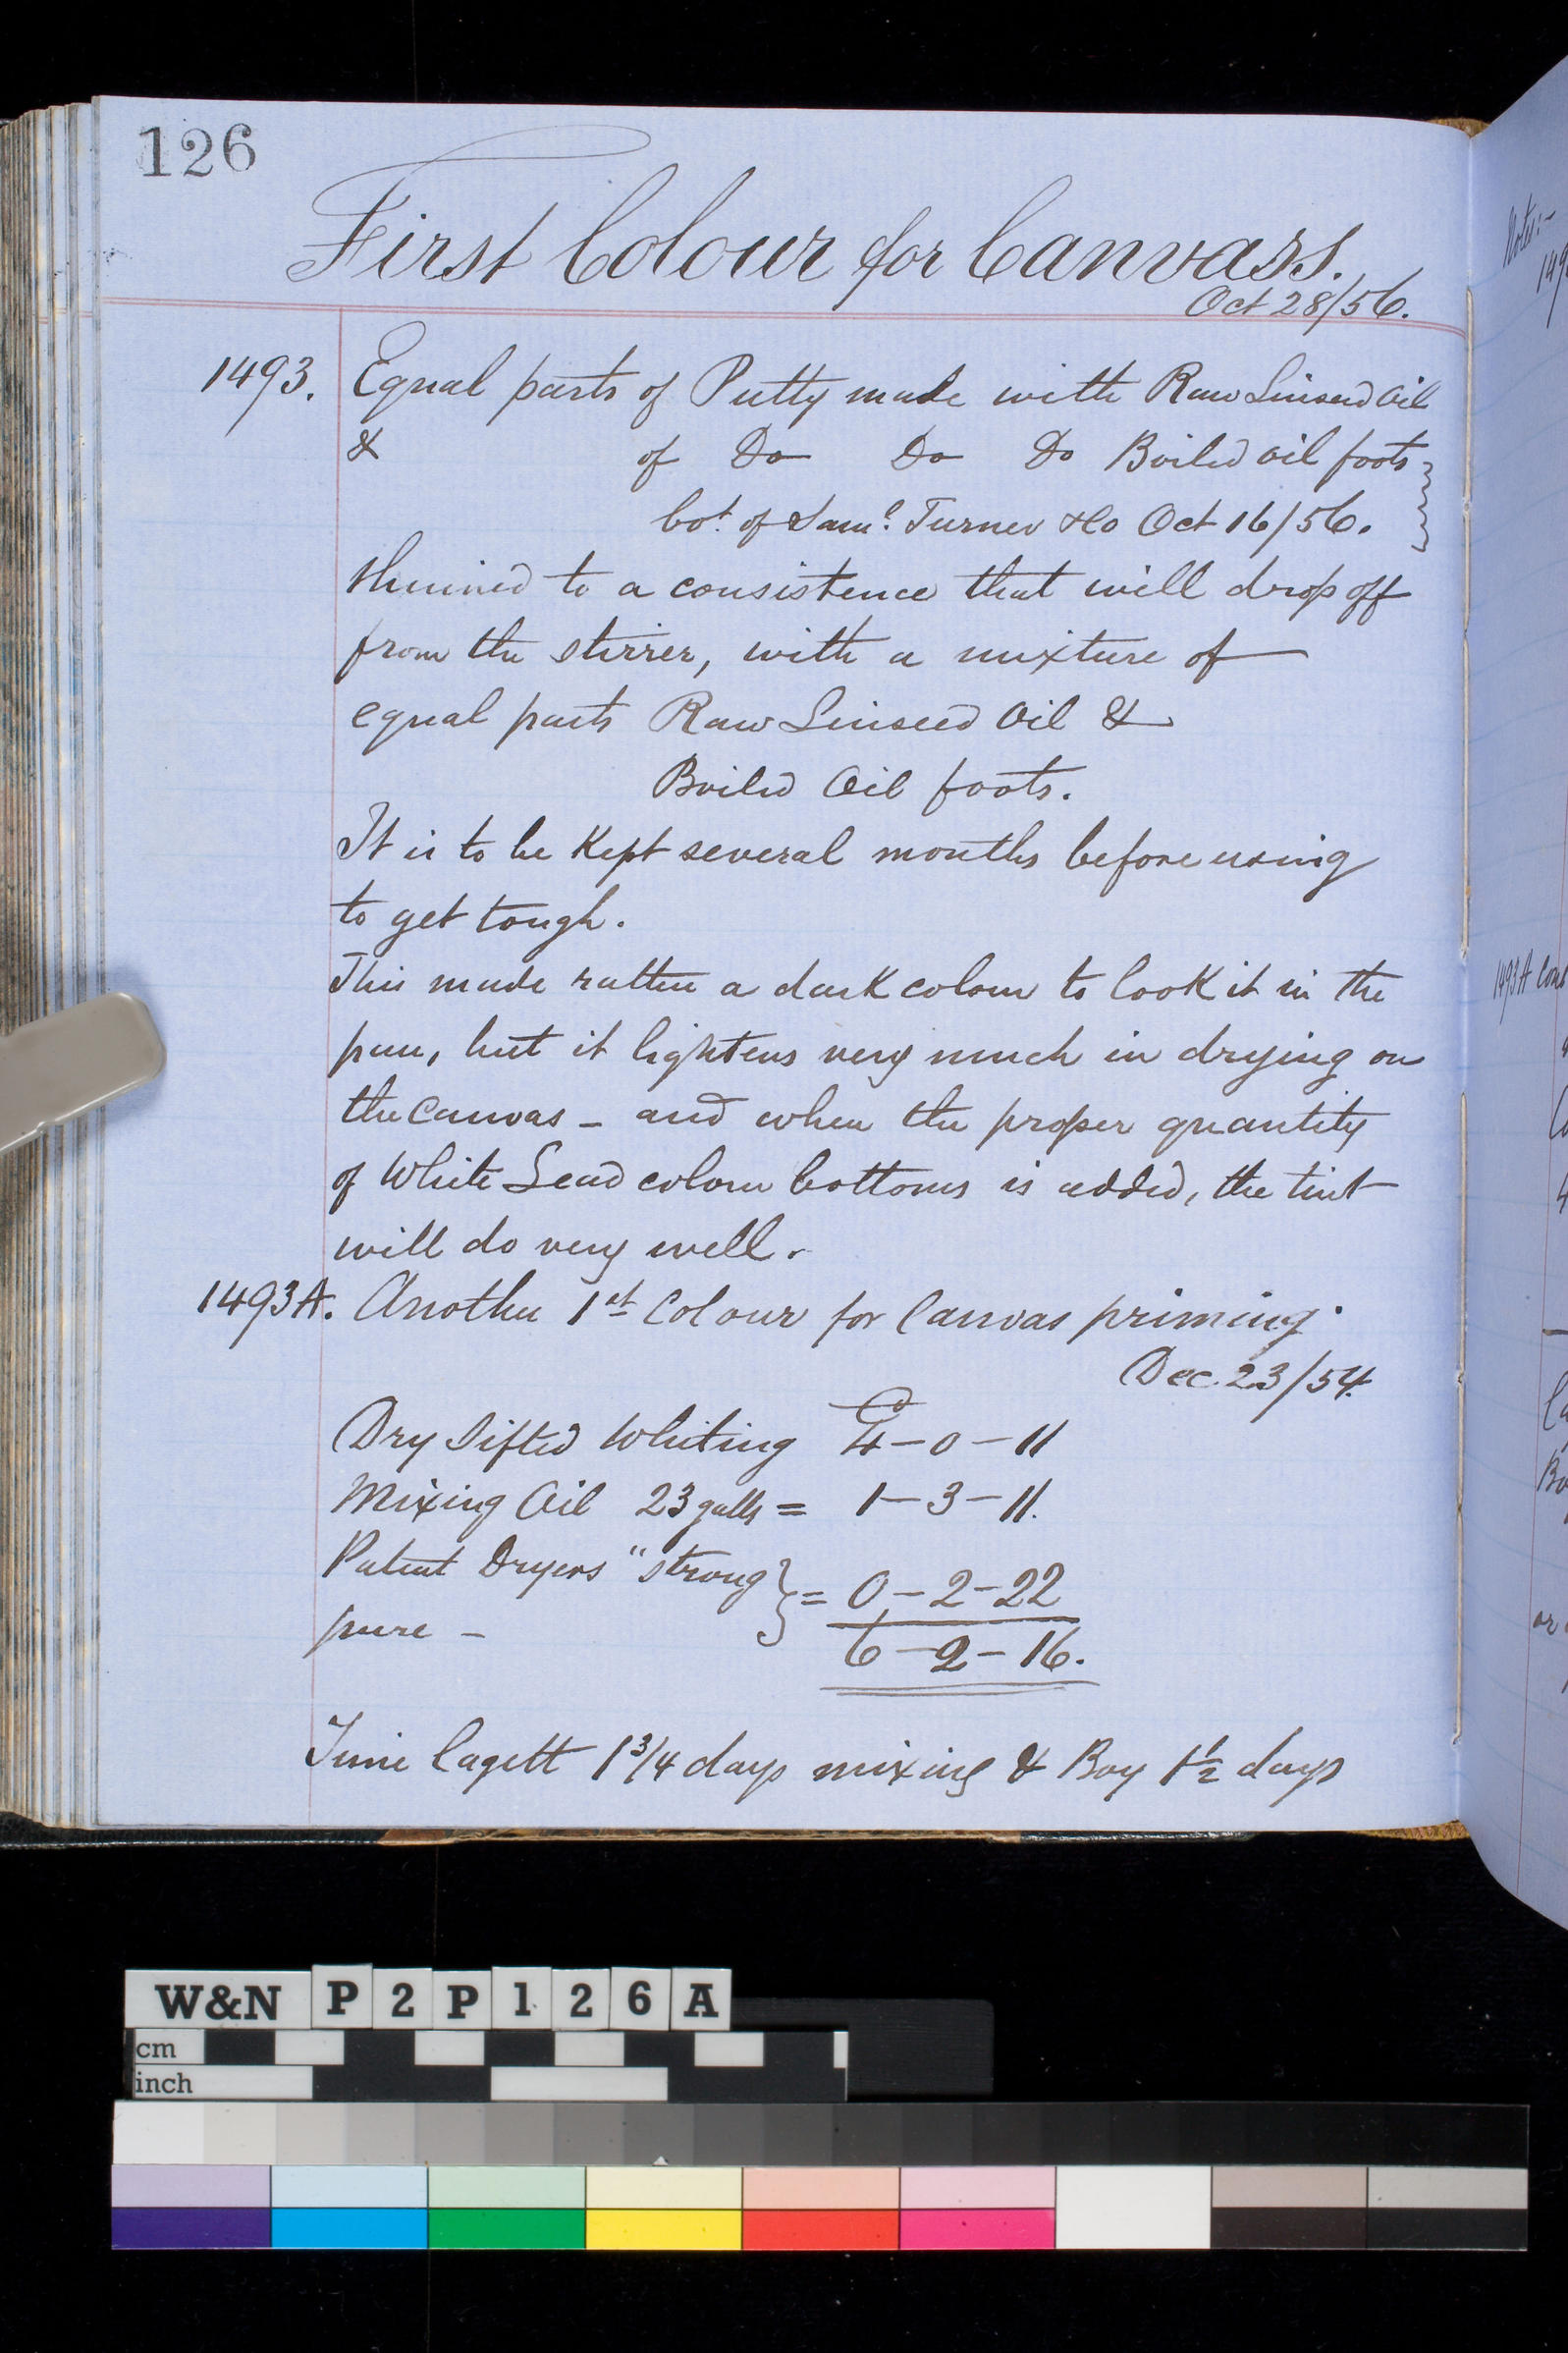 126
First Colour for Canvass.
Oct 28/56.
1493. Equal parts of Putty made with Raw Linseed Oil
& of Do Do Do Boiled oil foots
bot. of Saml. Turner & Co Oct 16/56.
thinned to a consistence that will drop off
from the stirrer, with a mixture of
equal parts Raw Linseed Oil &
Boiled Oil foots.
It is to be Kept several months before using
to get tough.
This made rather a dark colour to look it in the
pan, but it lightens very much in drying on
the canvas - and when the proper quantity
of White Lead colour bottoms is added, the tint
will do very well.
1493A. Another 1st Colour for Canvas priming.
Dec. 23/54.
Dry Sifted Whiting 4-0-11
Mixing Oil 23 galls = 1-3-11.
Patent Dryers "strong
pure - } = 0-2-22
6-2-16.
Time Cagett 1 3/4 days mixing & Boy 1 1/2 days
Notes:-
149
1493A
or
W&N P2P126A
cm
inch